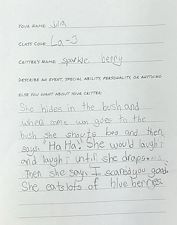 YOUR NAME: Julia
CLASS CODE: La-J
CRITTER'S NAME: sparkle berry
DESCRIBE AN EVENT, SPECIAL ABILITY, PERSONALITY, OR ANYTHING
ELSE YOU WANT ABOUT YOUR CRITTER:
She hides in the bush and
when some un goes to the
bush she shouts boo and then
says "Ha Ha! She would laugh
and laugh until she drops
Then she says I scared you good.
She eats lots of blueberries